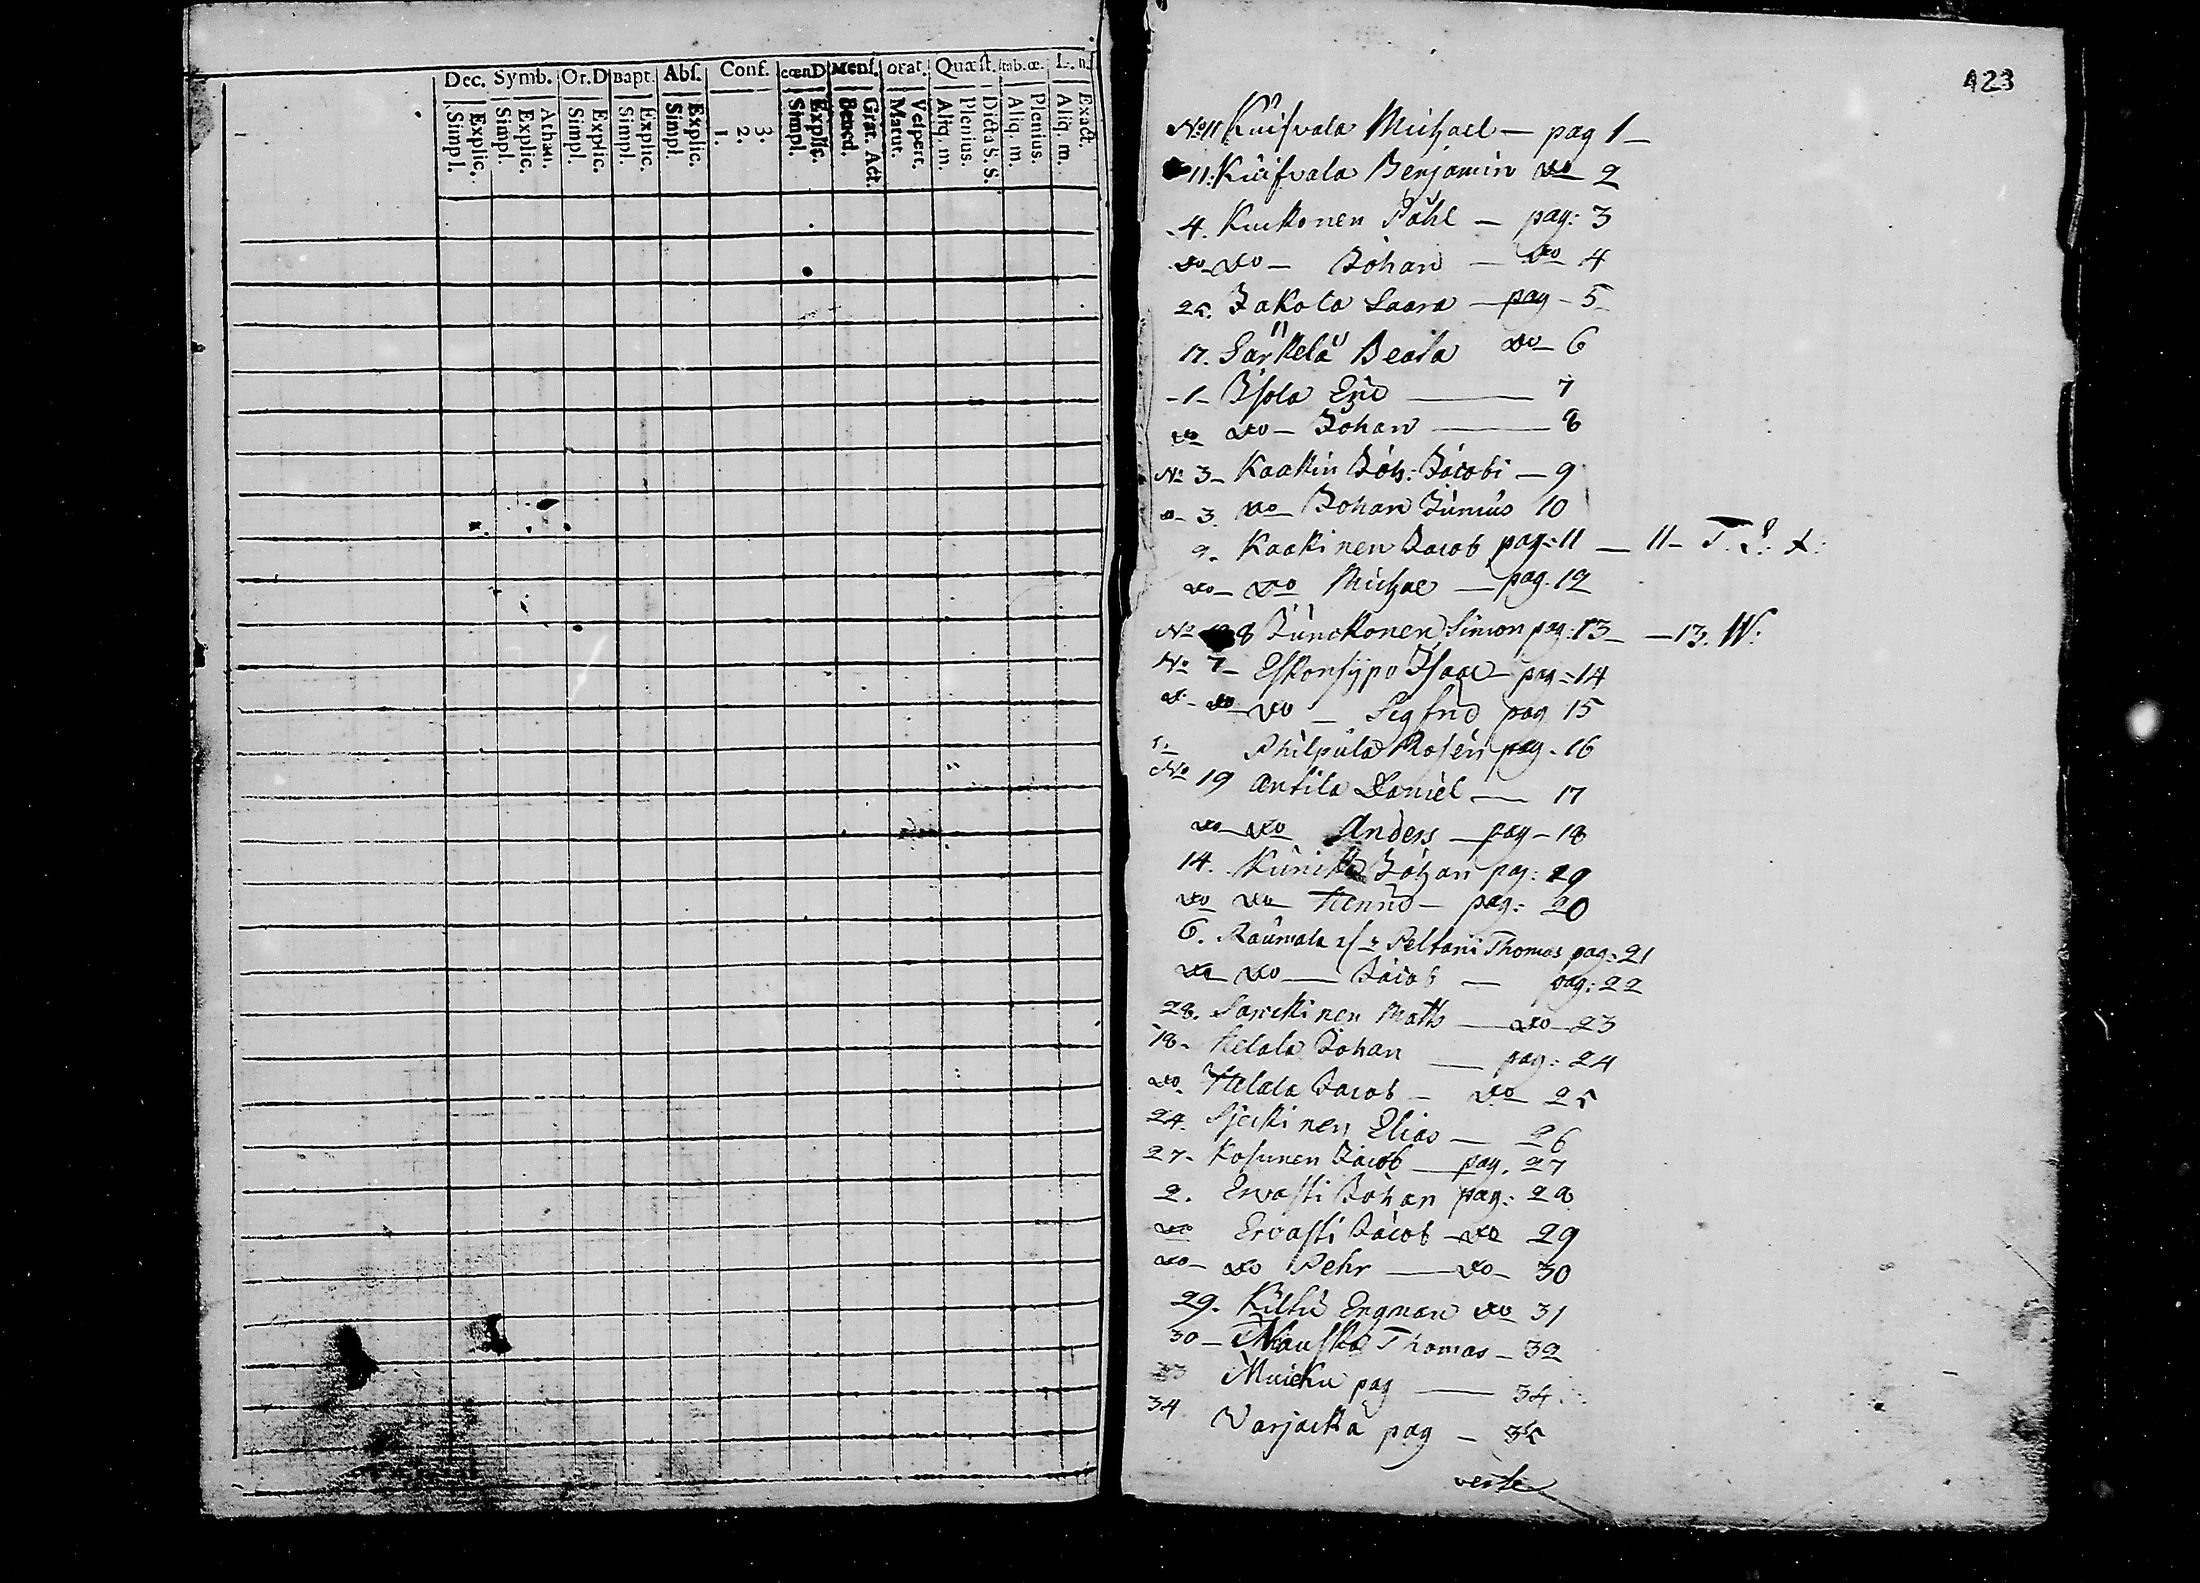 Dec. Symb. Or.D Bapt. Abs. Conf. cœnD Mens. orat. Quæst. tab.œ. L. n.s
Simpl. Explic. Simpl. Explic. Athan. Simpl. Explic. Simpl. Explic. Simpl. Explic. 1. 2. 3. Simpl. Explic. Bened. Grat. Act. Matut. Vespert. Aliq. m. Plenius. Dicta S. S. Aliq. m. Plenius. Aliq. m. Exact.
423
No 11 Kuifvala Michael — pag 1 —
11. Kuifvala Benjamin do 2
4. Kuckonen Påhl — pag: 3
do do — Johan — do 4
25. Jakola Saara — pag — 5
17. Särkelä Beata do 6
- 1 - Isola Eric — 7
do do — Johan — 8
No 3 — Kaakin Joh: Jacobi — 9
do 3. do Johan Junius 10
9. Kaakinen Jacob pag: 11 — 11 —
do do Michae — pag. 12
No 8 Junckonen Simon pag: 13 — 13. W:
No 7 — Eskonsypo Isaac — pag = 14
do do — Sigfrid pag 15
Philpula Rosén pag. 16
No 19 Antila Daniel — 17
do do Anders — pag — 18
14. Johan pag: 19
do do Henric — pag: 20
6. Raumala Peltoni Thomas pag: 21
do do — Jacob — pag: 22
28. Matts — do 23
18. Helala Johan — pag: 24
do Helala Jacob — do 25
24. Elias — 26
27. Kosunen Jacob — pag. 27
2. Ervasti Johan pag: 28
do Ervasti Jacob — do 29
do — do Pehr — do — 30
29. Engman do 31
30 — Thomas — 32
33 pag — 34
34 Varjacka pag — 35
verte